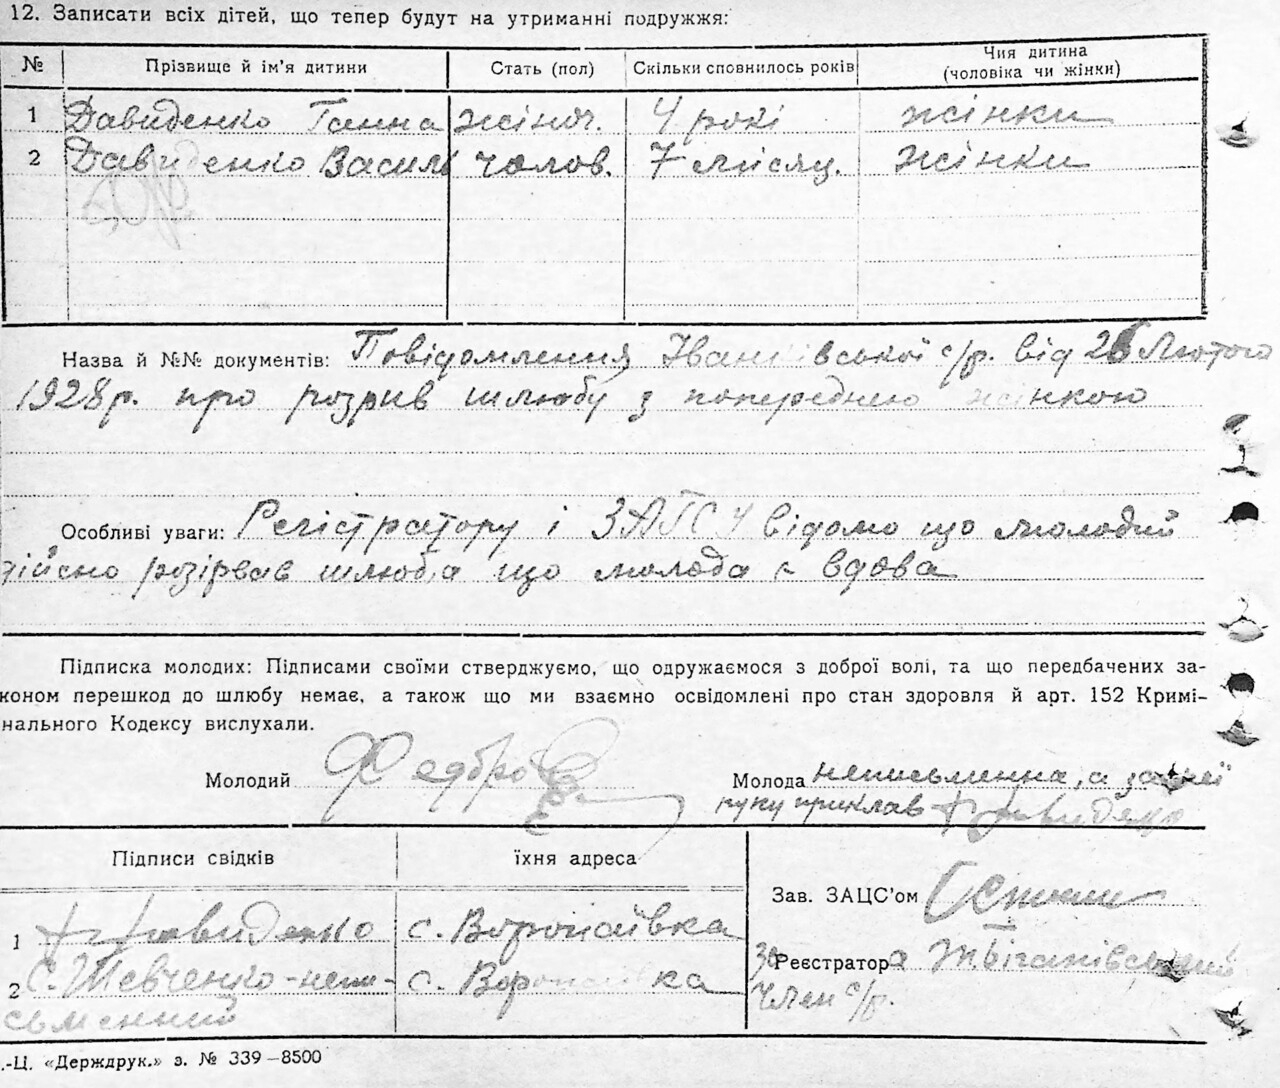 12. Записати всіх дітей, що тепер будут на утриманні подружжя:
№ Прізвище й ім'я дитини Стать (пол) Скільки сповнилось років Чия дитина (чоловіка чи жінки)
1 Давиденко Ганна жіноч. 4 рокі жінки
2 Давиденко Василь чолов. 7 місяц. жінки
Назва й №№ документів: Повідомлення Іванківської с/р. від 26 Лютого
1928 р. про розрив шлюбу з попереднею жінкою
Особливі уваги: Регістратору і ЗАГСу відомо що молодий
дійсно розірвав шлюб а що молода є вдова
Підписка молодих: Підписами своїми стверджуємо, що одружаємося з доброї волі, та що передбачених за-
коном перешкод до шлюбу немає, а також що ми взаємно освідомлені про стан здоровля й арт. 152 Кримі-
нального Кодексу вислухали.
Молодий Молода неписьменна, а за неї
руку приклав Давиденко
Підписи свідків їхня адреса
Зав. ЗАЦС'ом
1 Давиденко с. Воропаївка
За Реєстратора
2 С. Шевченко - непи- с. Воропаївка
Член с/р.
сьменний
.-Ц. «Держдрук.» з. № 339—8500